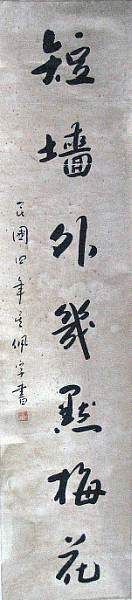 短墻外幾點梅花
民國四年吳佩孚書